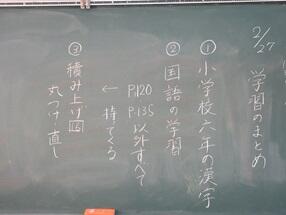 2/27 学習のまとめ
① 小学校六年の漢字
② 国語の学習
P.120
P.135 以外すべて
← 持てくる
③ 積み上げ
丸つけ・直し